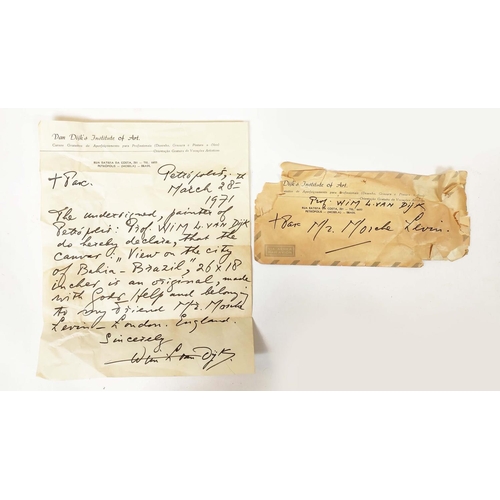 Van Dijk's Institute of Art.
RUA BATISTA DA COSTA,
PETROPOLIS - BRASIL
+ Pax.
Petrópolis, the
March 28th
1971
The undersigned, painter of
Petrópolis: Prof. WIM L. VAN DIJK
do hereby declare, that the
canvas "View on the city
of Bahia - Brazil", 26 x 18
inches is an original, made
with Gods Help and belong
to my friend Mr. Mosche
Levin - London. England.
Sincerely
Wim L van Dijk.
Dijk's Institute of Art.
PETROPOLIS - BRASIL
Prof. WIM L. VAN DIJK
+ Pax Mr. Mosche Levin.